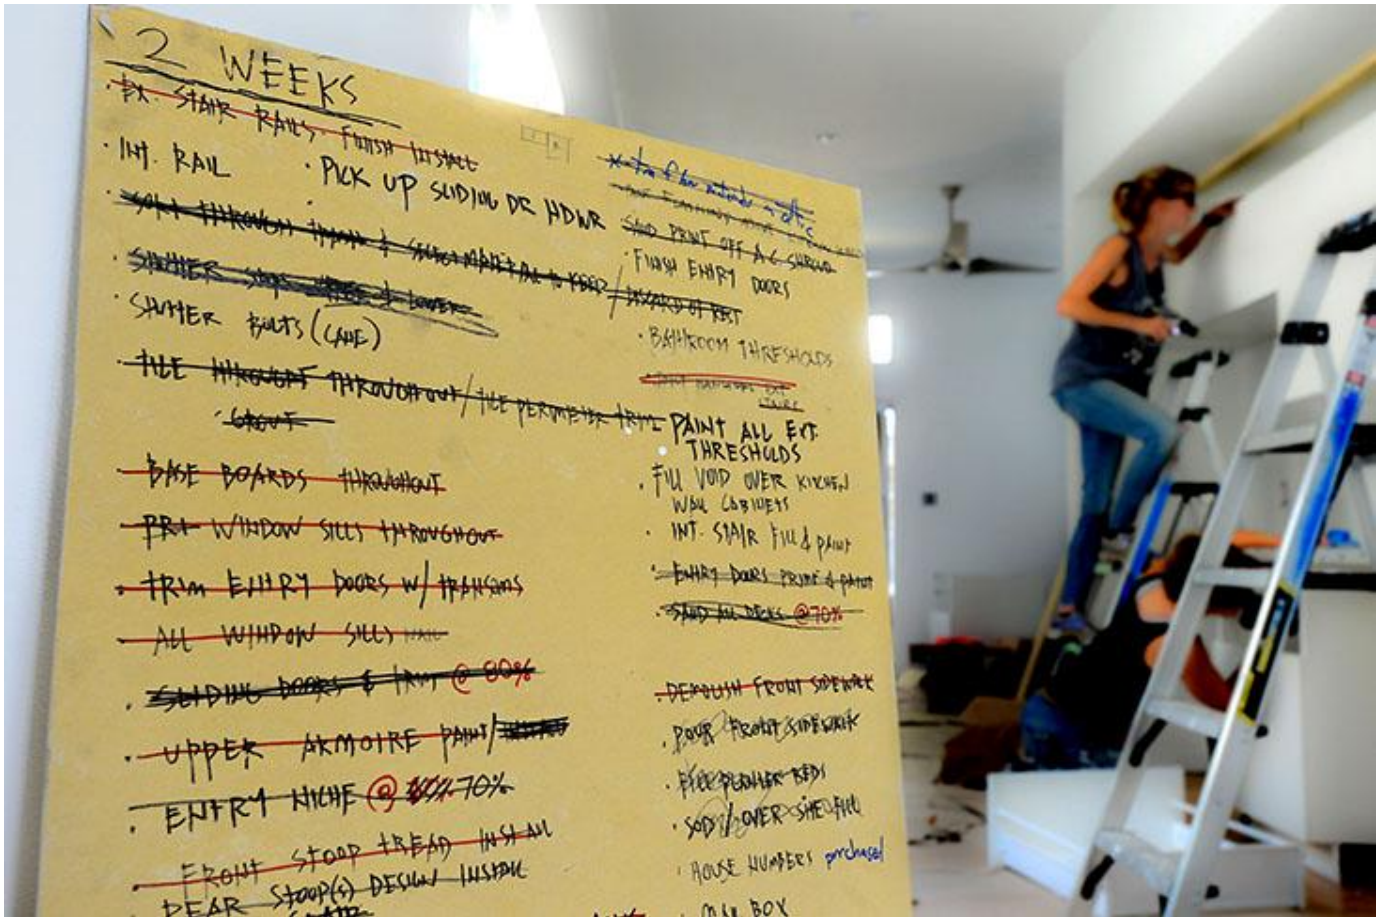 2 WEEKS
• EX. STAIR RAILS FINISH INSTALL
• INT. RAIL
• PICK UP SLIDING DR HDWR
SORT THROUGH & SELECT MATERIAL TO KEEP / DISCARD OF REST
SHUTTER & LOWER
• SHUTTER BOLTS (CANE)
• TILE THROUGHOUT / TILE PERIMETER TRIM
• GROUT
• BASE BOARDS THROUGHOUT
• PRT WINDOW SILLS THROUGHOUT
• TRIM ENTRY DOORS W/ TRANSOMS
• ALL WINDOW SILLS
• SLIDING DOORS & TRIM @ 80%
• UPPER ARMOIRE PAINT/
• ENTRY NICHE @ 70%
• FRONT STOOP TREAD INSTALL
REAR STOOP(S) DESIGN INSTALL
STAIR
PRINT OFF A.C. SHROUD
• FINISH ENTRY DOORS
• BATHROOM THRESHOLDS
STAIRS
PAINT ALL EXT.
THRESHOLDS
• FILL VOID OVER KITCHEN
WALL CABINETS
• INT. STAIR FILL & PAINT
• ENTRY DOORS PRIME & PAINT
• SAND ALL DECKS @ 70%
• DEMOLISH FRONT SIDEWALK
• POUR FRONT SIDEWALK
• FILL PLANTER BEDS
• SOD / OVER SITE FILL
• HOUSE NUMBERS purchased
• MAIL BOX